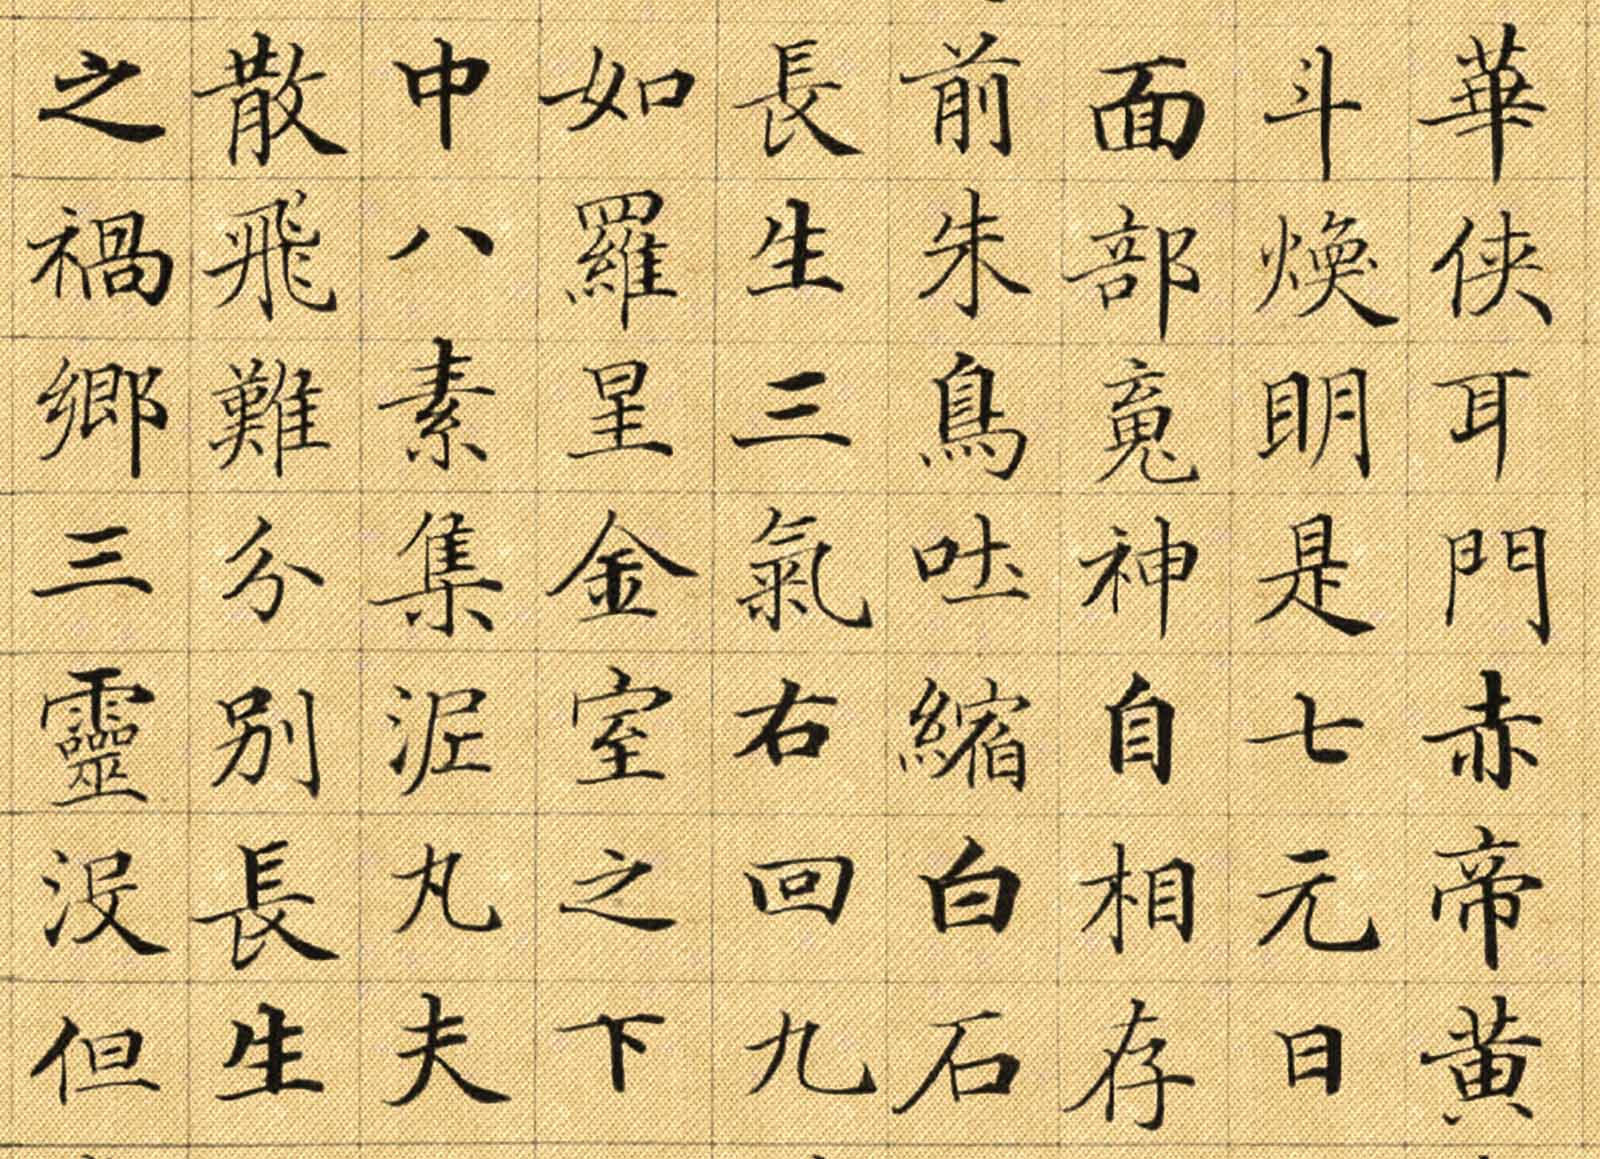 華侠耳門赤帝黄
斗煥明是七元日
面部魂神自相存
前朱鳥吐縮白石
長生三氣右回九
如羅星金室之下
中八素集泥丸夫
散飛難分別長生
之禍鄉三靈没但